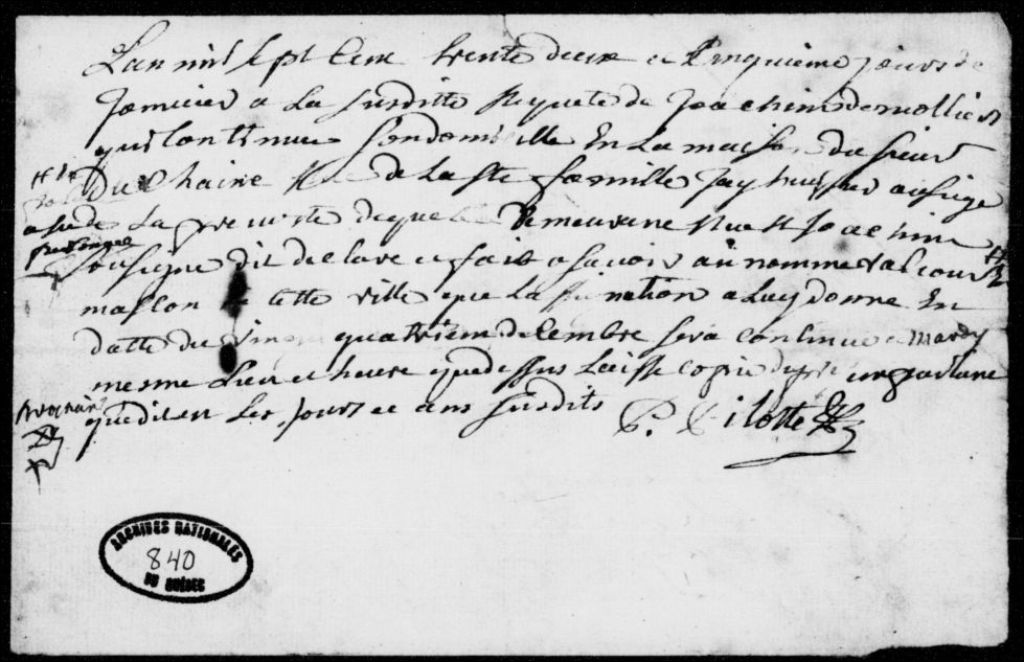 Lan mil sept Cent trente deux et Cinquieme jours de
Janvier a La susditte Requete de Joachim demollier
qui Continue son domicille En La maison du sieur
Duchaine Rue de La Ste famille Jay huissier
La prevosté de que demeurene Rue St Joachim
sousigne dit declare et fait asavoir au nomme valcour
masson de cette ville que La sination a Luy donne En
datte du vingt quatriem decembre sera continue a mardy
mesme Lieu et heure que dessus Laisse copie
que dit en Les Jours et ans susdits P. Pilotte
prochain
ARCHIVES NATIONALES
840
DU QUÉBEC